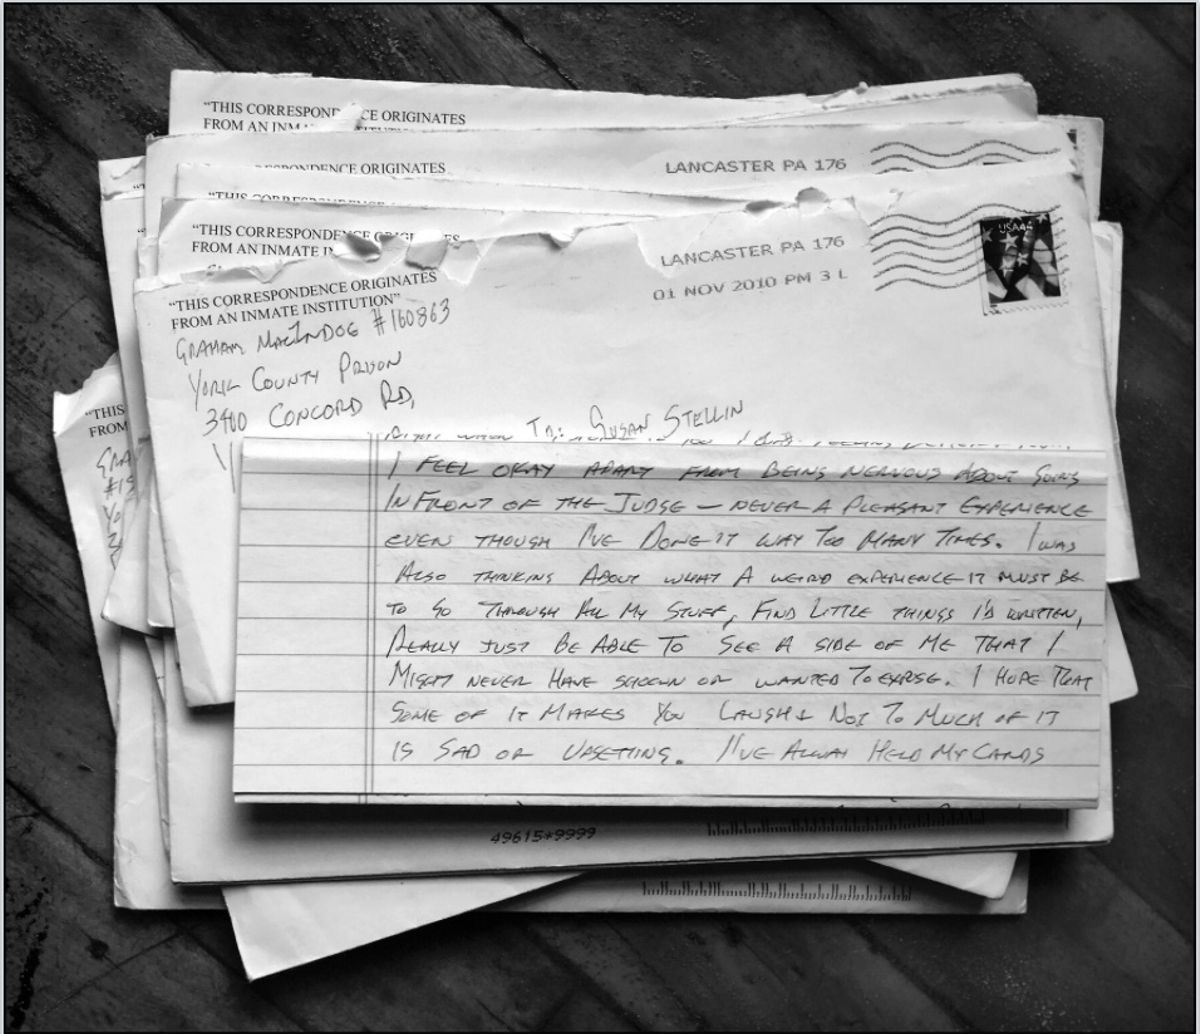 "THIS CORRESPONDENCE ORIGINATES
FROM AN INMA
CORRESPONDENCE ORIGINATES
LANCASTER PA 176
"THIS CORRESPONDENCE
"THIS CORRESPONDENCE ORIGINATES
FROM AN INMATE IN
LANCASTER PA 176
01 NOV 2010 PM 3 L
USA44
"THIS CORRESPONDENCE ORIGINATES
FROM AN INMATE INSTITUTION"
GRAHAM MACINDOE #160863
YORK COUNTY PRISON
3400 CONCORD RD,
"THIS
FROM
GRA
TO: SUSAN STELLIN
I FEEL OKAY APART FROM BEING NERVOUS ABOUT GOING
IN FRONT OF THE JUDGE – NEVER A PLEASANT EXPERIENCE
EVEN THOUGH I'VE DONE IT WAY TOO MANY TIMES. I WAS
ALSO THINKING ABOUT WHAT A WEIRD EXPERIENCE IT MUST BE
TO GO THROUGH ALL MY STUFF, FIND LITTLE THINGS I'D WRITTEN,
REALLY JUST BE ABLE TO SEE A SIDE OF ME THAT I
MIGHT NEVER HAVE SHOWN OR WANTED TO EXPOSE. I HOPE THAT
SOME OF IT MAKES YOU LAUGH & NOT TO MUCH OF IT
IS SAD OR UPSETTING. I'VE ALWAY HELD MY CARDS
49615*9999